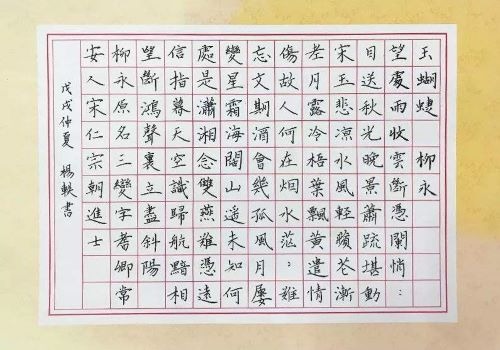 玉蝴蝶 柳永
望處雨收雲斷憑闌悄：
目送秋光晚景蕭疏堪動
宋玉悲涼水風輕蘋花漸
老月露冷梧葉飄黃遣情
傷故人何在烟水茫：難
忘文期酒會幾孤風月屢
變星霜海闊山遥未知何
處是瀟湘念雙燕難憑遠
信指暮天空識歸航黯相
望斷鴻聲裏立盡斜陽
柳永原名三變字耆卿常
安人宋仁宗朝進士
戊戌仲夏 楊軼書